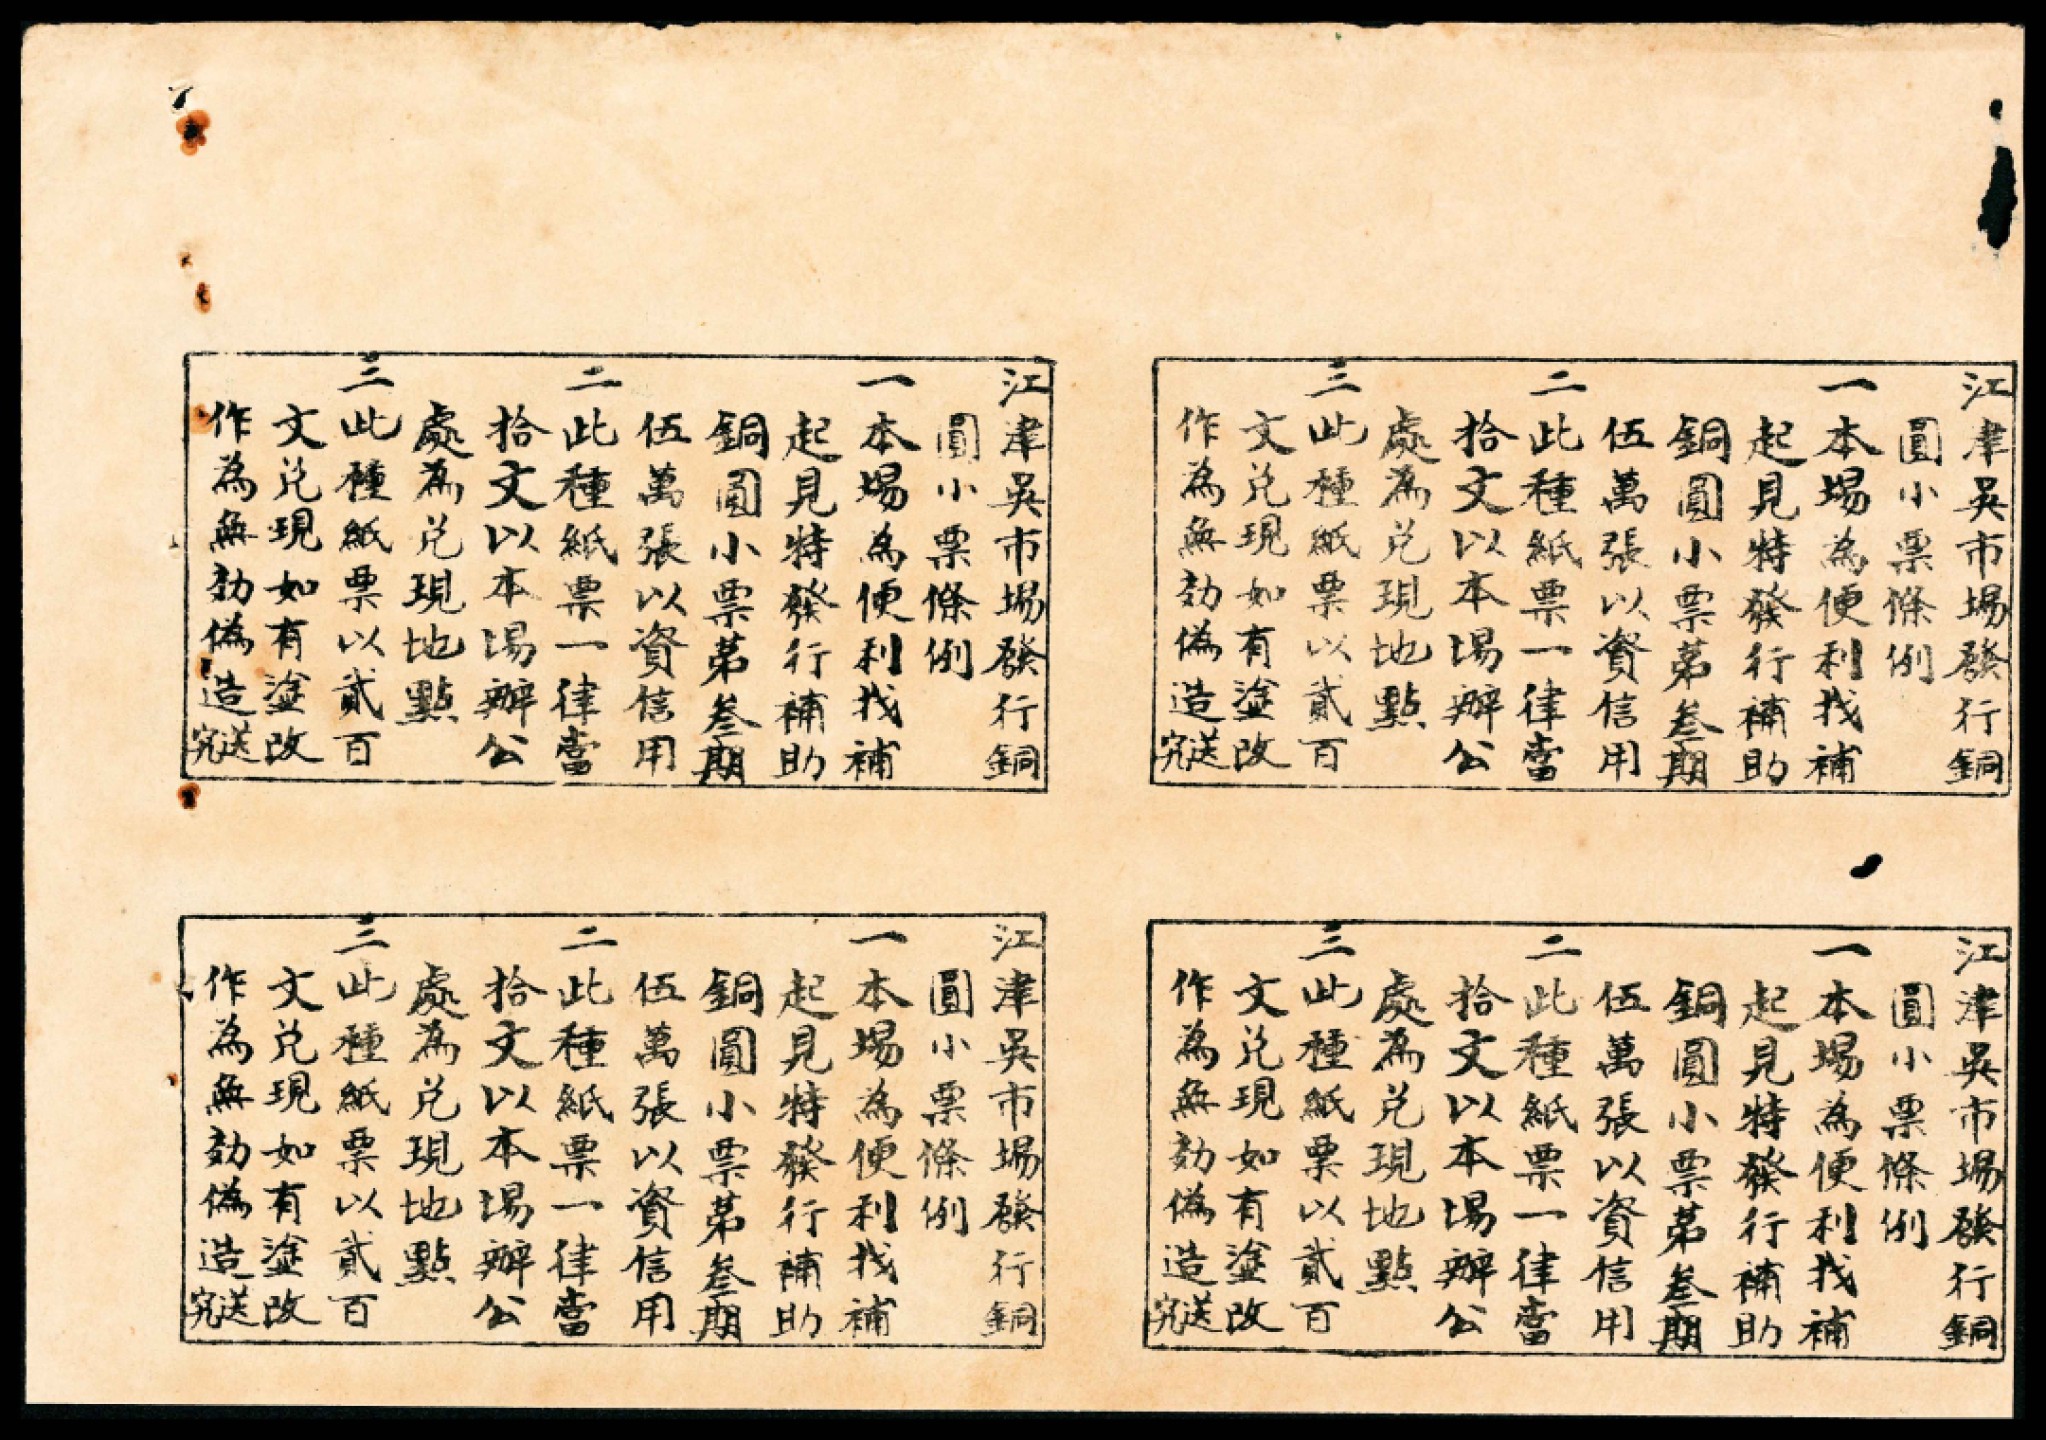 江津吳市場發行銅
圓小票條例
一本場為便利找補
起見特發行補助
銅圓小票第叁期
伍萬張以資信用
二此種紙票一律當
拾文以本場辦公
處為兌現地點
三此種紙票以貳百
文兌現如有塗改
作為無効偽造送究
江津吳市場發行銅
圓小票條例
一本場為便利找補
起見特發行補助
銅圓小票第叁期
伍萬張以資信用
二此種紙票一律當
拾文以本場辦公
處為兌現地點
三此種紙票以貳百
文兌現如有塗改
作為無効偽造送究
江津吳市場發行銅
圓小票條例
一本場為便利找補
起見特發行補助
銅圓小票第叁期
伍萬張以資信用
二此種紙票一律當
拾文以本場辦公
處為兌現地點
三此種紙票以貳百
文兌現如有塗改
作為無効偽造送究
江津吳市場發行銅
圓小票條例
一本場為便利找補
起見特發行補助
銅圓小票第叁期
伍萬張以資信用
二此種紙票一律當
拾文以本場辦公
處為兌現地點
三此種紙票以貳百
文兌現如有塗改
作為無効偽造送究